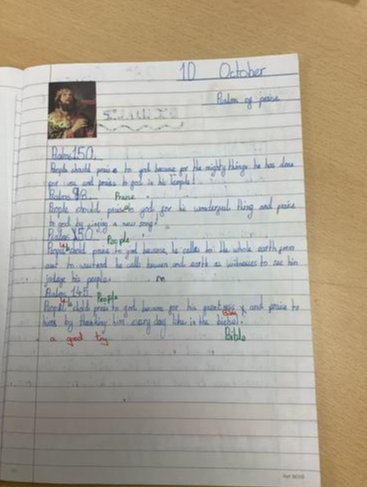 10 October
Psalm of praise
Psalm 150.
People should praise to god because for the mighty things he has done
for you and praise to god in his temple!
Psalm 98. Praise
People should praise to god for his wonderful thing and praise
to god by singing a new song!
Psalm 50. People
should praise to god because he calles to the whole earth from
east to west and he calls heaven and earth as witnesses to see him
judge his people.
Psalm 145. People
should praise to god because for his and praise to
him by thanking him every day like in the
a good try Bible